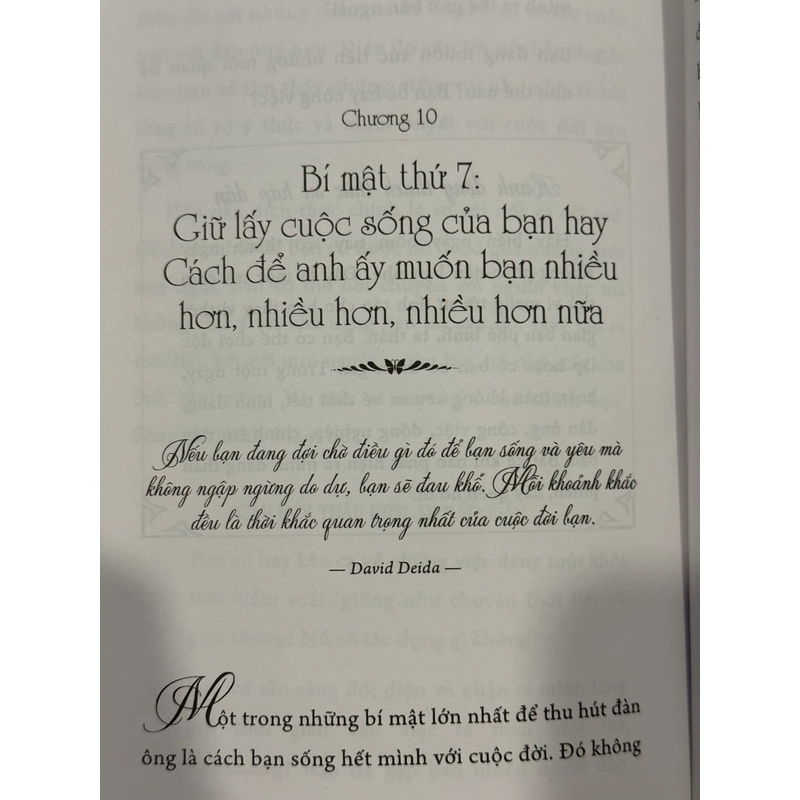 Chương 10
Bí mật thứ 7:
Giữ lấy cuộc sống của bạn hay
Cách để anh ấy muốn bạn nhiều
hơn, nhiều hơn, nhiều hơn nữa
Nếu bạn đang đợi chờ điều gì đó để bạn sống và yêu mà
không ngập ngừng do dự, bạn sẽ đau khổ. Mỗi khoảnh khắc
đều là thời khắc quan trọng nhất của cuộc đời bạn.
— David Deida —
Một trong những bí mật lớn nhất để thu hút đàn
ông là cách bạn sống hết mình với cuộc đời. Đó không